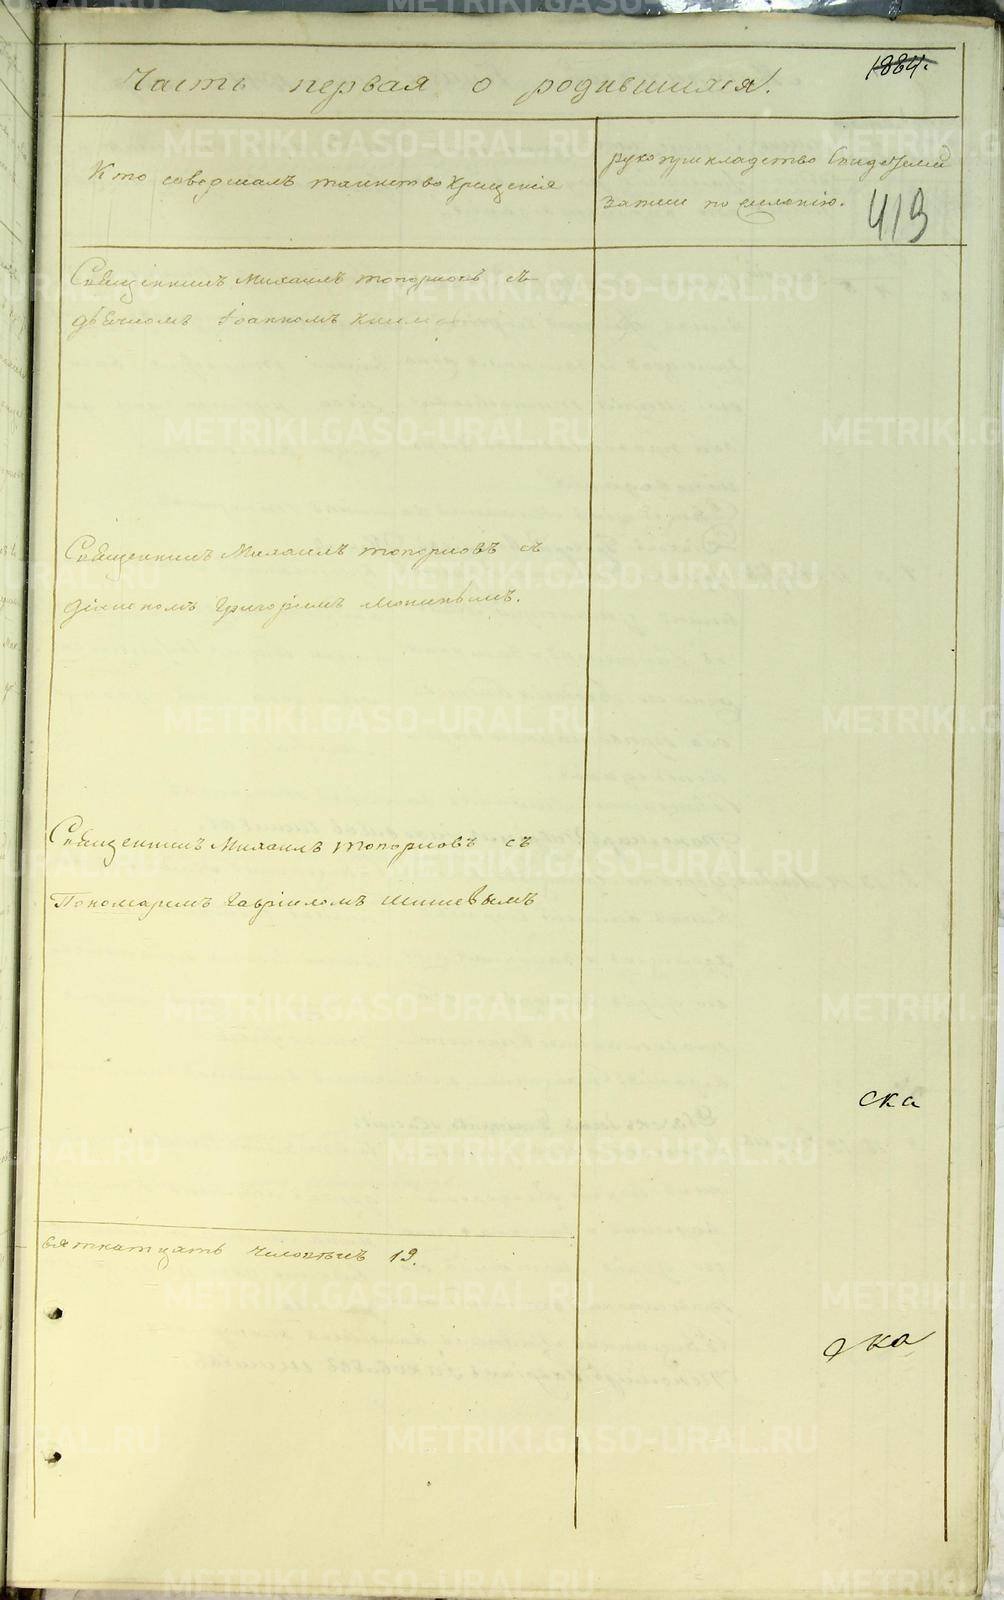 1884.
Часть первая о родившихся.
Кто совершалъ таинство крещенія
рукоприкладство Свидетелей
записи по желанію.
419
Священникъ Михаилъ Топорковъ съ
дьячкомъ Іоанномъ
Священникъ Михаилъ Топорковъ съ
Діакономъ Григоріемъ
Священникъ Михаилъ Топорковъ съ
Пономаремъ Гавріиломъ Шишевымъ
ска
вятнатцать человѣкъ 19.
ска
METRIKI.GASO-URAL.RU